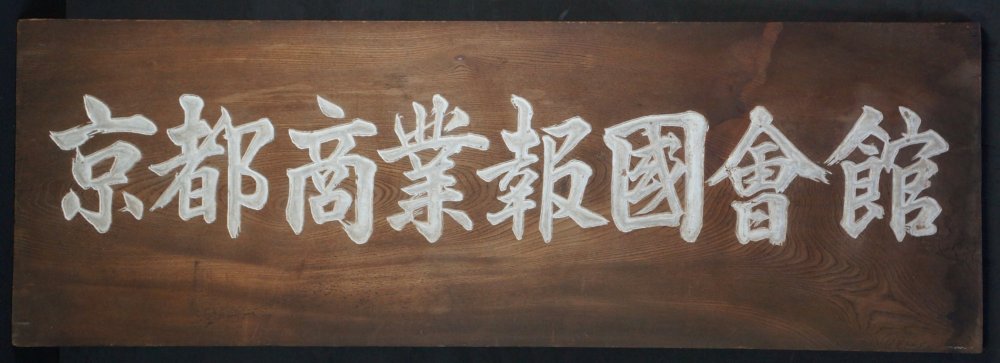 京都商業報國會館